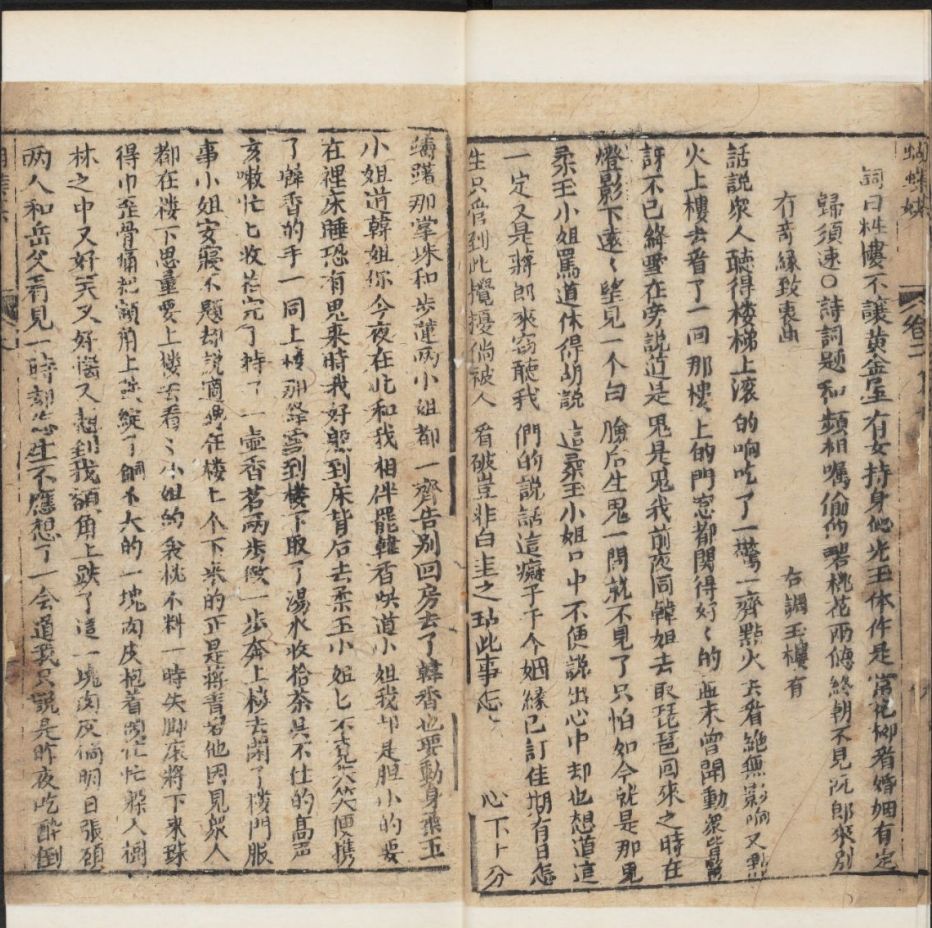 蝴蝶媒
卷二
詞曰粧樓不讓黄金屋有女持身似光玉体件是當花卿者婚姻有定
歸須速〇詩詞題和頻相嘱偷的碧桃花兩傍終朝不見阮郎來别
有奇緣致衷曲
右調玉樓有
話說衆人聽得楼梯上滚的响吃了一驚一齊點火去看絶無影响又點
火上樓去看了一回那樓上的門窓都関得好〻的並未曾開動衆皆驚
訝不已絳雪在旁説道是鬼是鬼我前夜同韓姐去取琵琶回來之時在
燈影下遠〻望見一个白臉后生鬼一閃就不見了只怕如今就是那鬼
柔玉小姐罵道休得胡説這柔玉小姐口中不便説出心中却也想道這
一定又是蒋郎來窃聽我們的説話這癡子千今姻緣已訂佳期有日怎
生只管到此攪擾倘被人看破豈非白圭之玷此事怎心下十分
躊躇那掌珠和步蓮两小姐都一齊告别回房去了韓香也要動身柔玉
小姐道韓姐你今夜在此和我相伴罷韓香哄道小姐我却是胆小的要
在裡床睡恐有鬼来時我好躲到床背后去柔玉小姐匕不覚笑便携
了韓香的手一同上楼那絳雪到楼下取了湯水收拾茶具不住的高声
亥嗽忙匕收拾完了持了一壶香茗两步做一步奔上楼去関了楼門服
事小姐安寢不題却説 在楼上个下来的正是蒋青岩他因見衆人
都在楼下思量要上楼去看〻小姐的我枕不料一時失脚滚將下來跌
得巾歪骨痛把額角上跌綻了銅不大的一塊肉皮抱着頭忙忙躲入樹
林之中又好笑又好惱又想到我額角上跌了這一塊肉皮倘明日張顧
两人和岳父看見一時刻怎生不應想了一会道我只說是昨夜吃醉倒